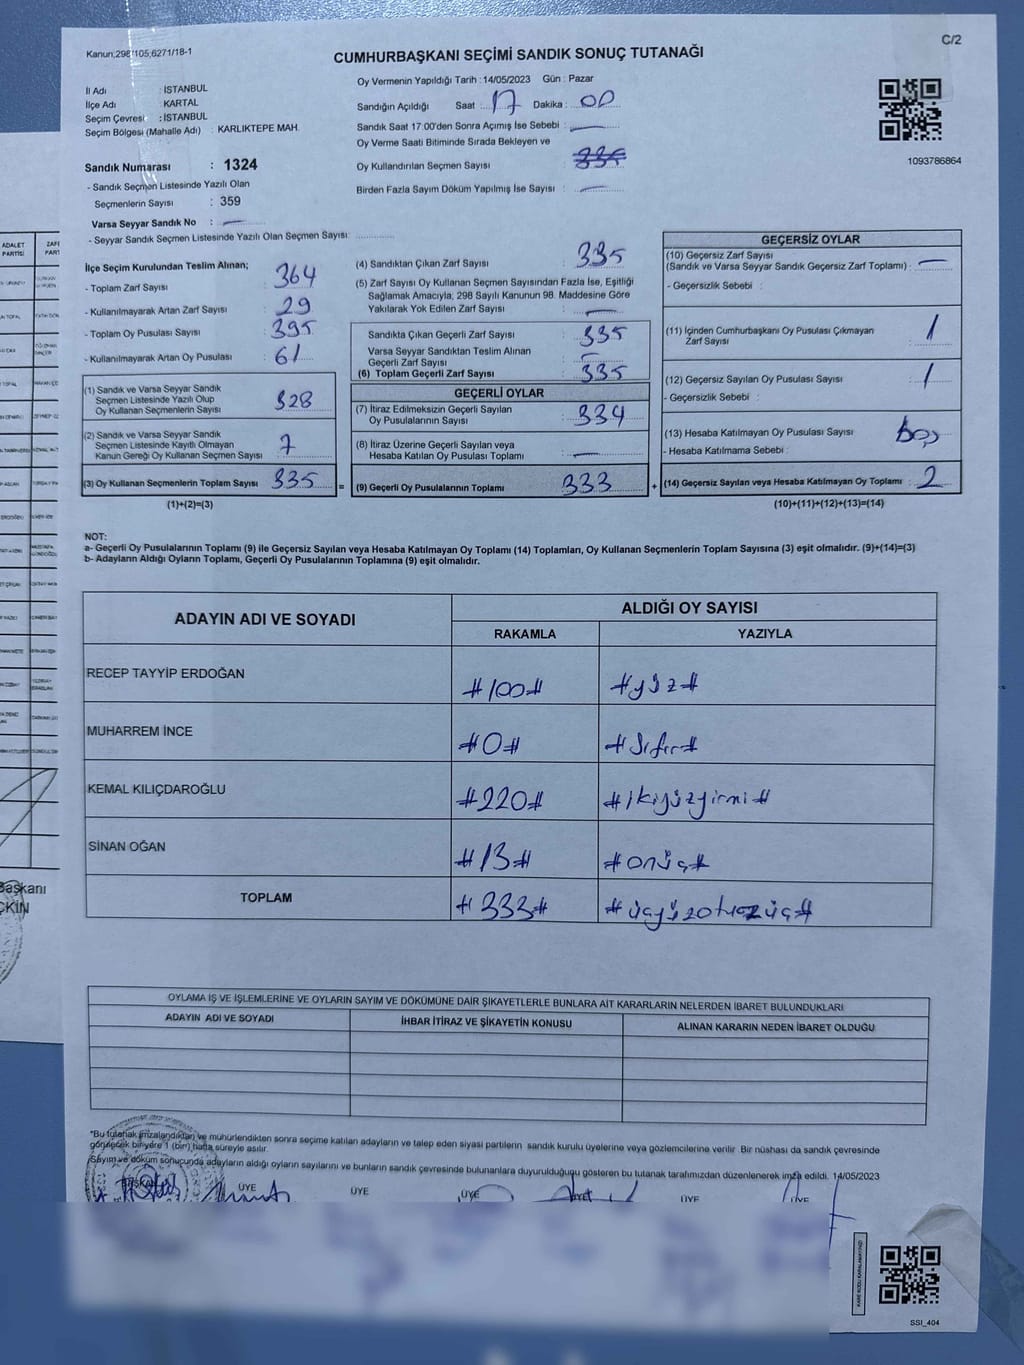 Kanun;298/105,6271/18-1
C/2
CUMHURBAŞKANI SEÇİMİ SANDIK SONUÇ TUTANAĞI
İl Adı : İSTANBUL
İlçe Adı : KARTAL
Seçim Çevresi : İSTANBUL
Seçim Bölgesi (Mahalle Adı) : KARLIKTEPE MAH.
Oy Vermenin Yapıldığı Tarih : 14/05/2023 Gün : Pazar
Sandığın Açıldığı Saat : 17 Dakika : 00
Sandık Saat 17:00'den Sonra Açımış İse Sebebi : —
Oy Verme Saati Bitiminde Sırada Bekleyen ve
Oy Kullandırılan Seçmen Sayısı :
Birden Fazla Sayım Döküm Yapılmış İse Sayısı : —
1093786864
Sandık Numarası : 1324
- Sandık Seçmen Listesinde Yazılı Olan
Seçmenlerin Sayısı : 359
Varsa Seyyar Sandık No : —
- Seyyar Sandık Seçmen Listesinde Yazılı Olan Seçmen Sayısı:
İlçe Seçim Kurulundan Teslim Alınan;
- Toplam Zarf Sayısı : 364
- Kullanılmayarak Artan Zarf Sayısı : 29
- Toplam Oy Pusulası Sayısı : 395
- Kullanılmayarak Artan Oy Pusulası : 61
(1) Sandık ve Varsa Seyyar Sandık
Seçmen Listesinde Yazılı Olup
Oy Kullanan Seçmenlerin Sayısı : 328
(2) Sandık ve Varsa Seyyar Sandık
Seçmen Listesinde Kayıtlı Olmayan
Kanun Gereği Oy Kullanan Seçmen Sayısı : 7
(3) Oy Kullanan Seçmenlerin Toplam Sayısı : 335
(1)+(2)=(3)
(4) Sandıktan Çıkan Zarf Sayısı : 335
(5) Zarf Sayısı Oy Kullanan Seçmen Sayısından Fazla İse, Eşitliği
Sağlamak Amacıyla; 298 Sayılı Kanunun 98. Maddesine Göre
Yakılarak Yok Edilen Zarf Sayısı : —
Sandıkta Çıkan Geçerli Zarf Sayısı : 335
Varsa Seyyar Sandıktan Teslim Alınan
Geçerli Zarf Sayısı : —
(6) Toplam Geçerli Zarf Sayısı : 335
GEÇERLİ OYLAR
(7) İtiraz Edilmeksizin Geçerli Sayılan
Oy Pusulalarının Sayısı : 334
(8) İtiraz Üzerine Geçerli Sayılan veya
Hesaba Katılan Oy Pusulası Toplamı : —
= (9) Geçerli Oy Pusulalarının Toplamı : 333 +
GEÇERSİZ OYLAR
(10) Geçersiz Zarf Sayısı
(Sandık ve Varsa Seyyar Sandık Geçersiz Zarf Toplamı) : —
- Geçersizlik Sebebi :
(11) İçinden Cumhurbaşkanı Oy Pusulası Çıkmayan
Zarf Sayısı : 1
(12) Geçersiz Sayılan Oy Pusulası Sayısı : 1
- Geçersizlik Sebebi :
(13) Hesaba Katılmayan Oy Pusulası Sayısı : boş
- Hesaba Katılmama Sebebi :
(14) Geçersiz Sayılan veya Hesaba Katılmayan Oy Toplamı : 2
(10)+(11)+(12)+(13)=(14)
NOT:
a- Geçerli Oy Pusulalarının Toplamı (9) ile Geçersiz Sayılan veya Hesaba Katılmayan Oy Toplamı (14) Toplamları, Oy Kullanan Seçmenlerin Toplam Sayısına (3) eşit olmalıdır. (9)+(14)=(3)
b- Adayların Aldığı Oyların Toplamı, Geçerli Oy Pusulalarının Toplamına (9) eşit olmalıdır.
ADAYIN ADI VE SOYADI
ALDIĞI OY SAYISI
RAKAMLA YAZIYLA
RECEP TAYYİP ERDOĞAN #100# #yüz#
MUHARREM İNCE #0# #sıfır#
KEMAL KILIÇDAROĞLU #220# #ikiyüzyirmi#
SİNAN OĞAN #13# #onüç#
TOPLAM #333# #üçyüzotuzüç#
OYLAMA İŞ VE İŞLEMLERİNE VE OYLARIN SAYIM VE DÖKÜMÜNE DAİR ŞİKAYETLERLE BUNLARA AİT KARARLARIN NELERDEN İBARET BULUNDUKLARI
ADAYIN ADI VE SOYADI İHBAR İTİRAZ VE ŞİKAYETİN KONUSU ALINAN KARARIN NEDEN İBARET OLDUĞU
*Bu tutanak imzalandıktan ve mühürlendikten sonra seçime katılan adayların ve talep eden siyasi partilerin sandık kurulu üyelerine veya gözlemcilerine verilir. Bir nüshası da sandık çevresinde
görülecek bir yere 1 (bir) hafta süreyle asılır.
Sayım ve döküm sonucunda adayların aldığı oyların sayılarını ve bunların sandık çevresinde bulunanlara duyurulduğunu gösteren bu tutanak tarafımızdan düzenlenerek imza edildi. 14/05/2023
BAŞKAN ÜYE ÜYE ÜYE ÜYE ÜYE
KARE KODU KARALAMAYINIZ!
SSI_404
ADALET
PARTİSİ
Başkanı